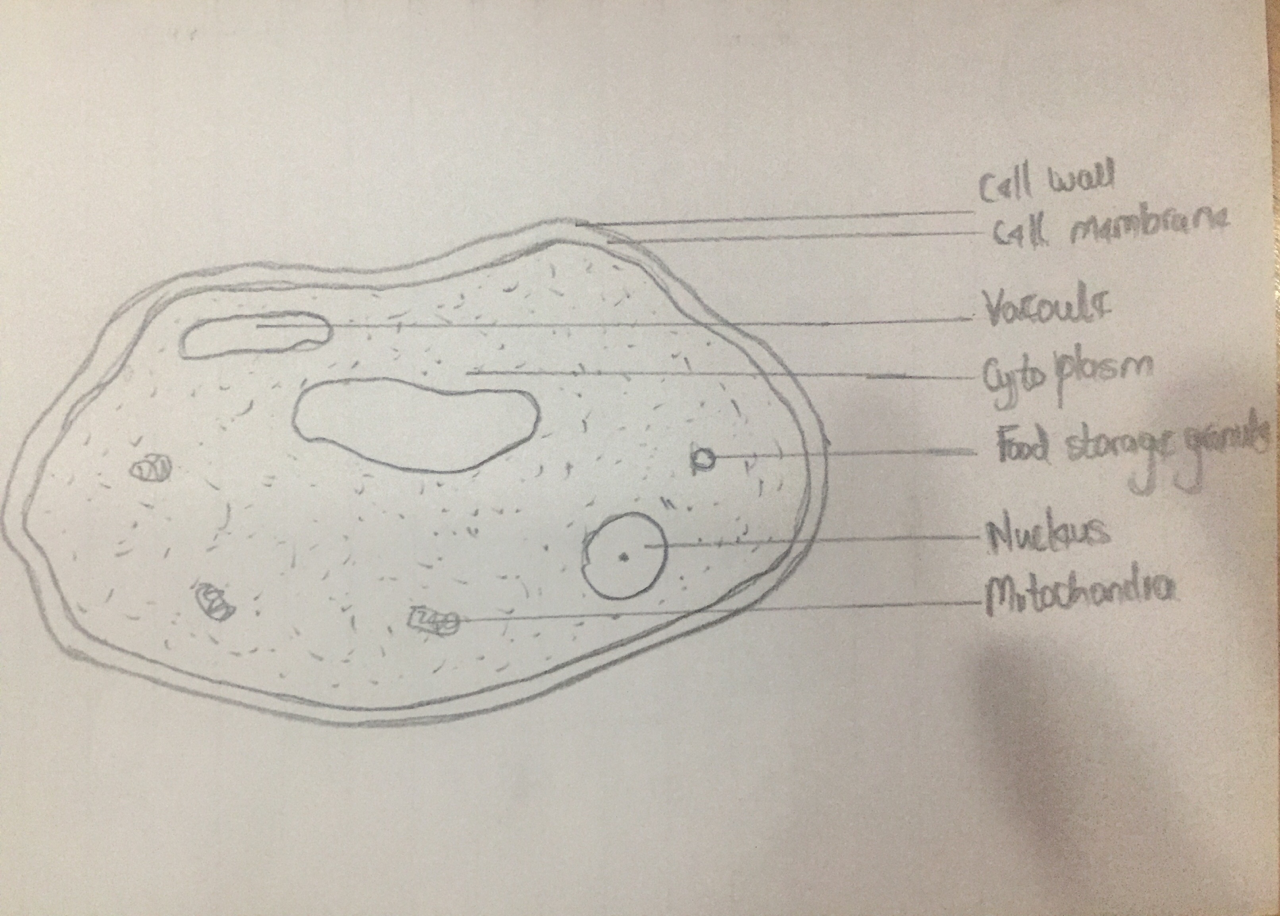 Cell wall
Cell membrane
Vacoule
Cytoplasm
Food storage granule
Nucleus
Mitochondria